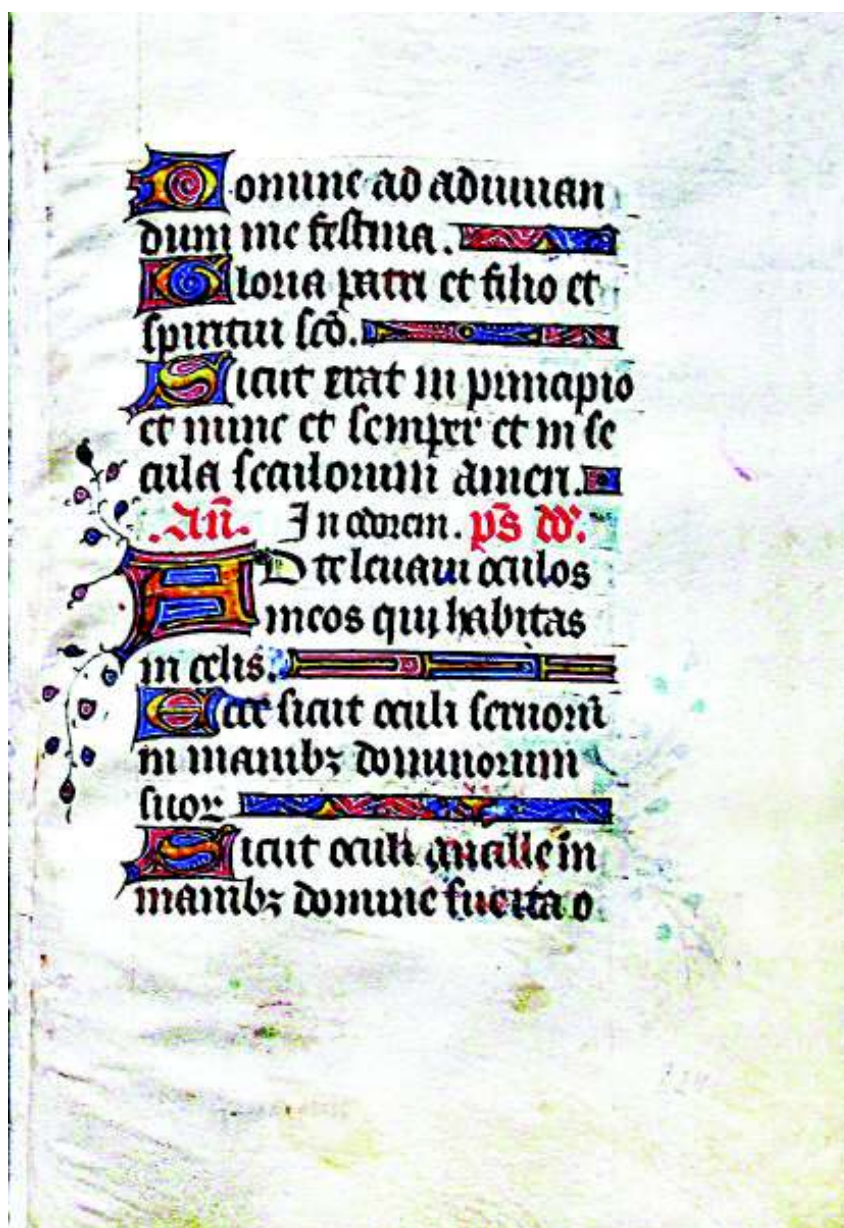 Domine ad adiuuan
dum me festina.
Gloria patri et filio et
spiritui sc̄o.
Sicut erat in principio
et nunc et semper et in se
cula seculorum amen.
.An̄. In odorem. ps̄ dd̄.
AD te leuaui oculos
meos qui habitas
in celis.
Ecce sicut oculi seruorū
in manibꝫ dominorum
suoꝝ
Sicut oculi ancille in
manibꝫ domine sue ita o